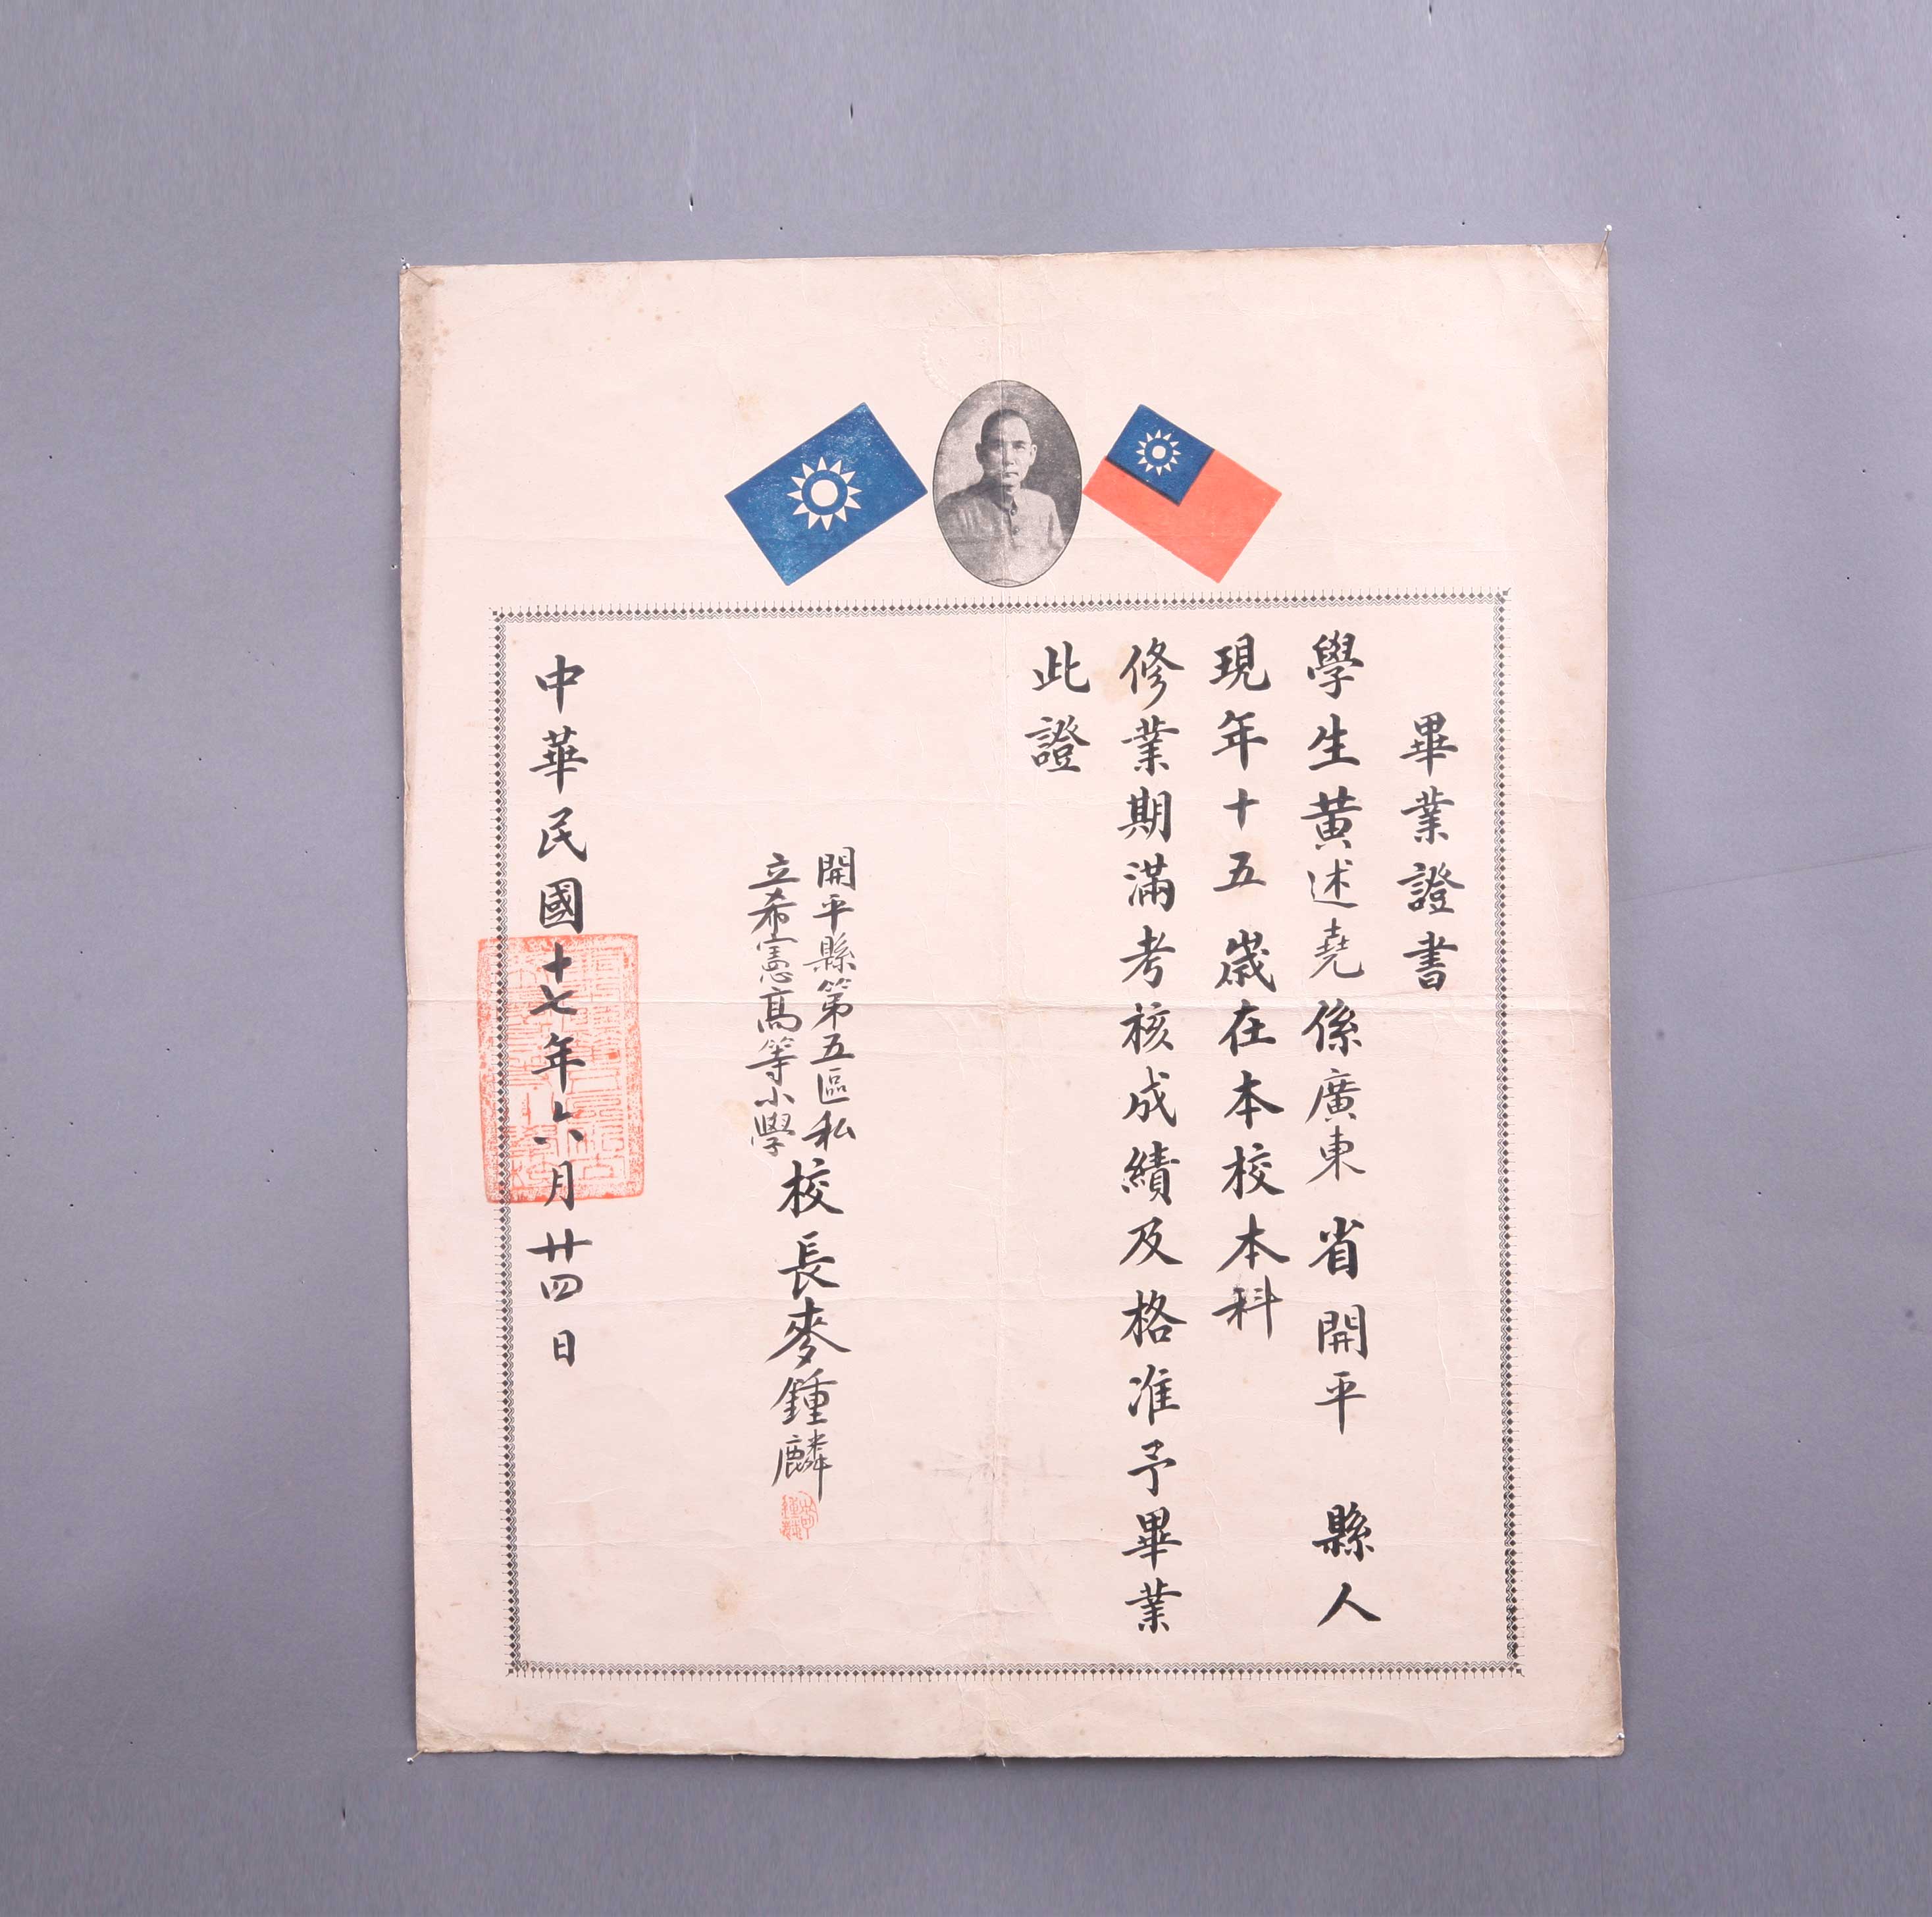 畢業證書
學生黄述堯係廣東省開平縣人
現年十五歲在本校本科
修業期滿考核成績及格准予畢業
此證
開平縣第五區私
立希憲高等小學
校長麥鍾麟
中華民國十七年六月廿四日